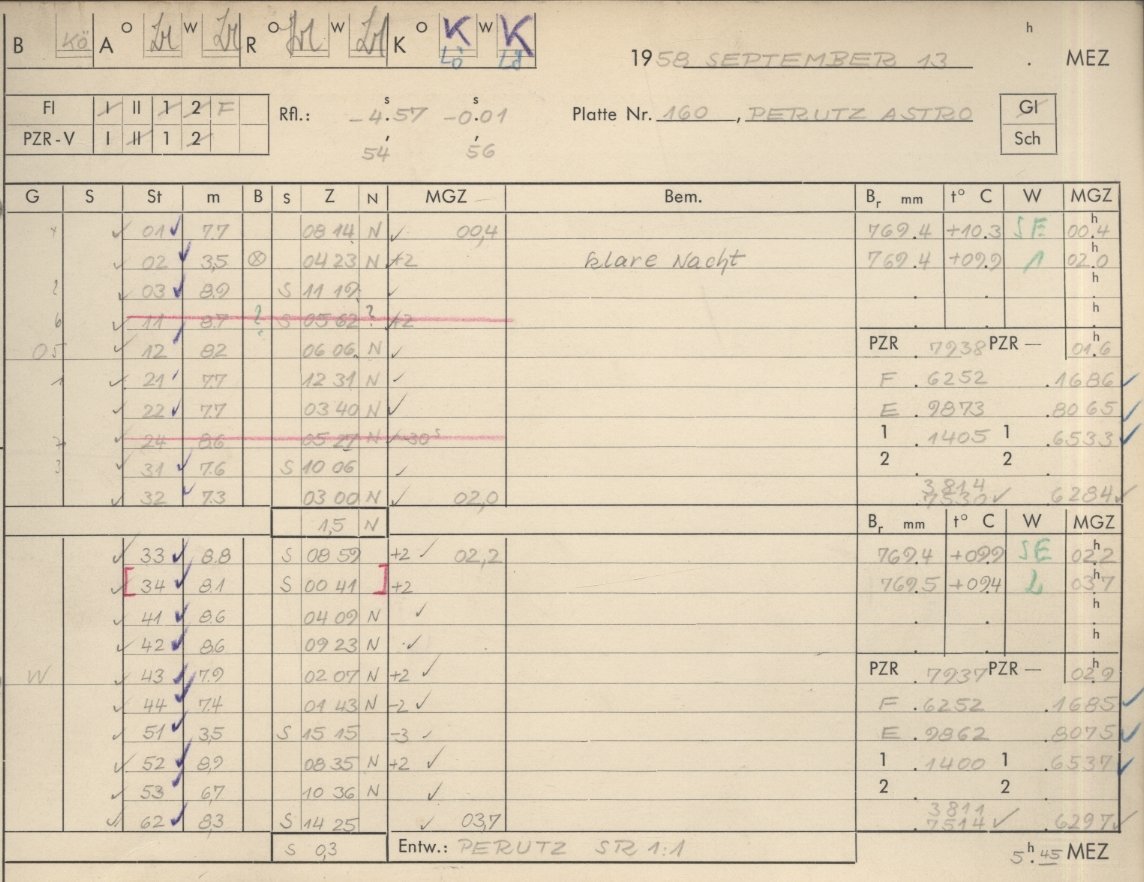 B Kö A o W R o W K o K W K
Lö Lö
1958 SEPTEMBER 13 h . MEZ
FI I II 1 2 F
PZR-V I II 1 2
Rfl.: -4.57 s -0.01 s
54 56
Platte Nr. 160, PERUTZ ASTRO
GI
Sch
G S St m B S Z N MGZ Bem. Br mm t° C W MGZ
✓ 01 ✓ 7.7 08 14 N ✓ 00,4 769.4 +10.3 SE 00.4 h
✓ 02 ✓ 3,5 ⊗ 04 23 N +2 klare Nacht 769.4 +09.9 1 02.0 h
2 ✓ 03 ✓ 8.9 S 11 19 ✓ . . . h
6 ✓ 11 8.7 ? S 05 62 ? +2 . . . h
05 ✓ 12 8.2 06 06 N ✓ PZR . 7938 PZR — 01.6 h
1 ✓ 21 7.7 12 31 N ✓ F .6252 .1686 ✓
✓ 22 ✓ 7.7 03 40 N ✓ E .9873 .8065 ✓
✓ 24 8.6 05 27 N ✓ -30s 1 .1405 1 .6533 ✓
3 ✓ 31 ✓ 7.6 S 10 06 ✓ 2 2
✓ 32 ✓ 7.3 03 00 N ✓ 02,0 3814 7530 ✓ .6284 ✓
1,5 N Br mm t° C W MGZ
✓ 33 ✓ 8.8 S 08 59 +2 ✓ 02,2 769.4 +09.9 SE 02.2 h
✓ [34 ✓ 8.1 S 00 41 ] +2 769.5 +09.4 03.7 h
✓ 41 ✓ 8.6 04 09 N ✓ . . . h
✓ 42 ✓ 8.6 09 23 N ✓ . . . h
W ✓ 43 ✓ 7.9 02 07 N +2 ✓ PZR . 7937 PZR — 02.9 h
✓ 44 ✓ 7.4 01 43 N -2 ✓ F .6252 .1685 ✓
✓ 51 ✓ 3,5 S 15 15 -3 ✓ E .9862 .8075 ✓
✓ 52 ✓ 8,9 08 35 N +2 ✓ 1 .1400 1 .6537 ✓
✓ 53 ✓ 6,7 10 36 N ✓ 2 2
✓ 62 ✓ 8,3 S 14 25 ✓ 03,7 3811 7514 ✓ .6297 ✓
S 0,3 Entw.: PERUTZ SR 1:1 5 h.45 MEZ